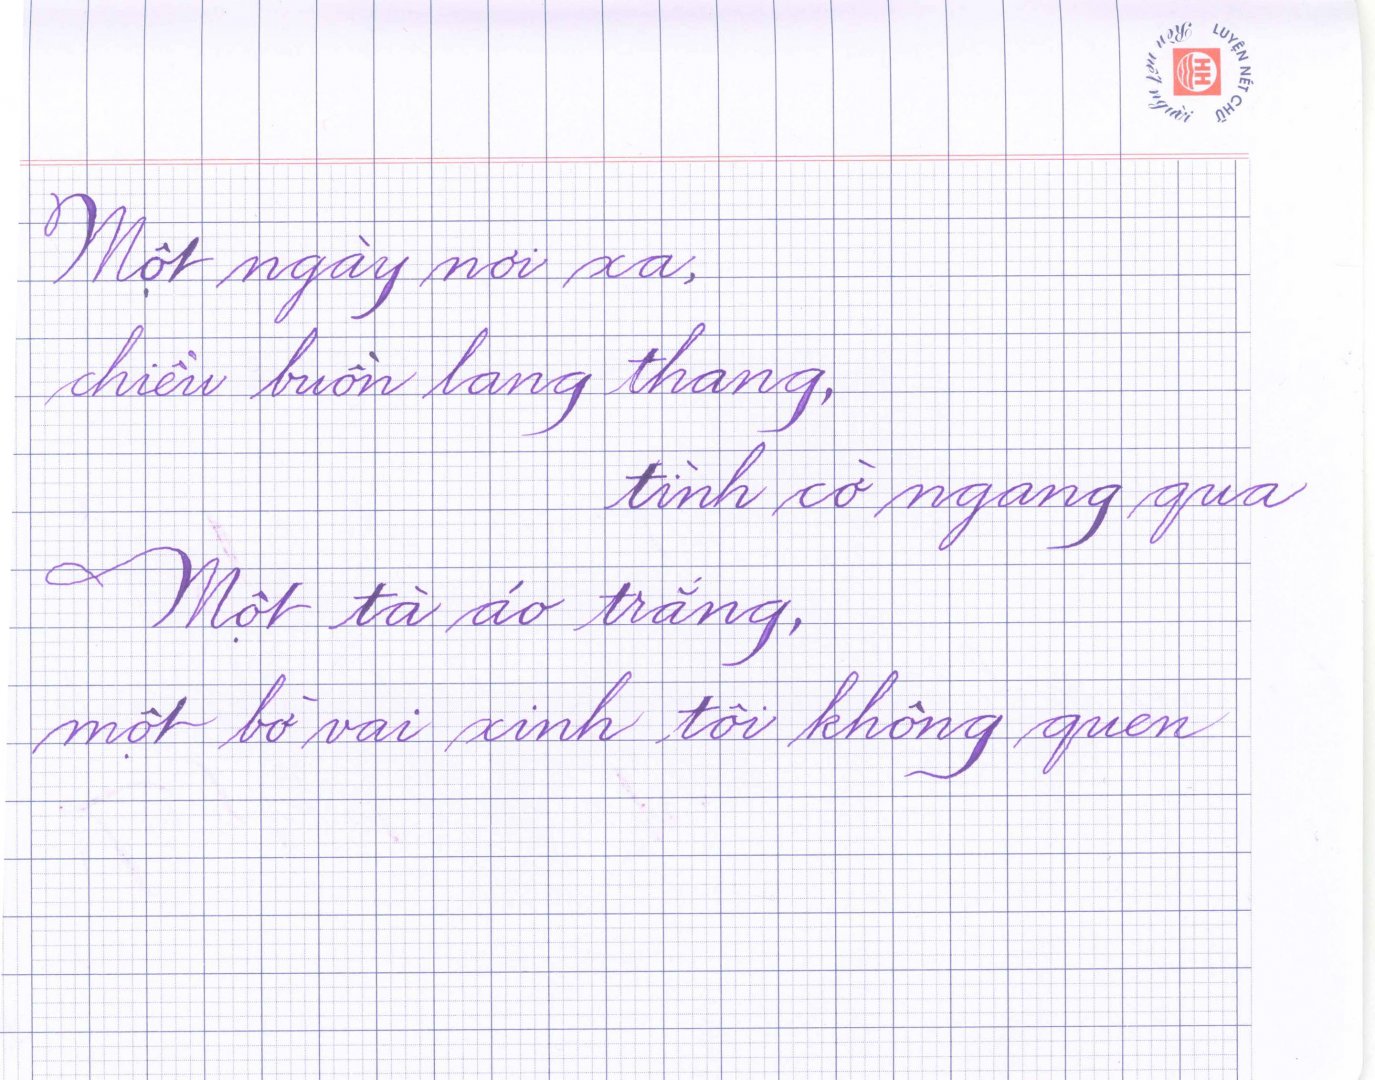 LUYỆN NÉT CHỮ
Rèn nết người
HH
Một ngày nơi xa,
chiều buồn lang thang,
tình cờ ngang qua
Một tà áo trắng,
một bờ vai xinh tôi không quen